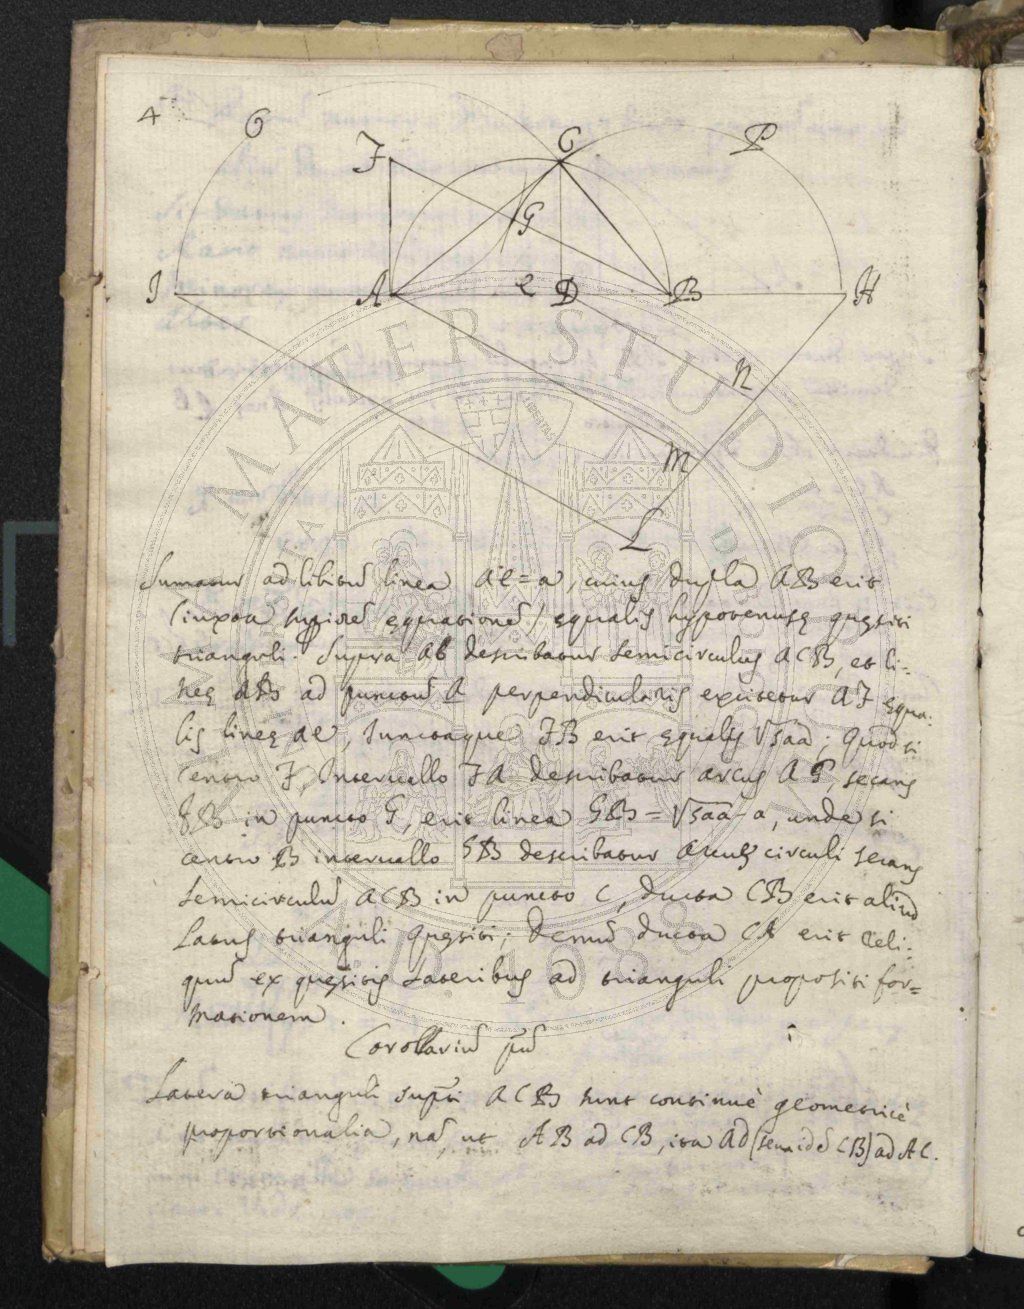 4
O
F
C
P
G
I
A
e
D
B
H
N
M
L
ALMA MATER STUDIORUM
LIBERTAS
A.D. 1088
Sumatur ad libitũ linea Ae = a, cuius dupla AB erit
(iuxta supiorẽ equationẽ) equalis hypotenusę quęsiti
trianguli. Supra AB describatur semicirculus ACB, et li-
neę AB ad punctũ A perpendicularis excitetur AF equa-
lis lineę Ae, iunctaque FB erit equalis √5aa; Quod si
centro F, Intervallo FA describatur arcus AG, secans
FB in puncto G, erit linea GB = √5aa - a, unde si
centro B intervallo GB describatur arcus circuli secans
semicirculũ ACB in puncto C, ducta CB erit aliud
Latus trianguli quęsiti; Demũ ducta CA erit reli-
quũ ex quęsitis Lateribus ad trianguli propositi for=
mationem.
Corollariũ pũ
Latera trianguli supti ACB sunt continuè geometricè
proportionalia, nã, ut AB ad CB, ita AD (seu idẽ CB) ad AC.